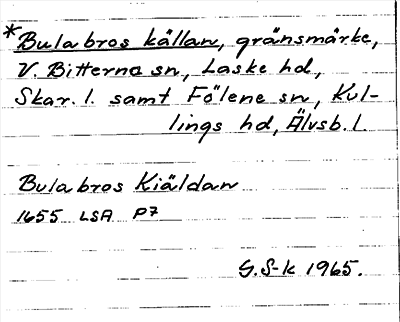 *Bulabros källan, gränsmärke,
V. Bitterna sn, Laske hd,
Skar. l. samt Fölene sn, Kul-
lings hd, Älvsb. l.
Bulabros Kiäldan
1655 LSA P7
G. S-k 1965.